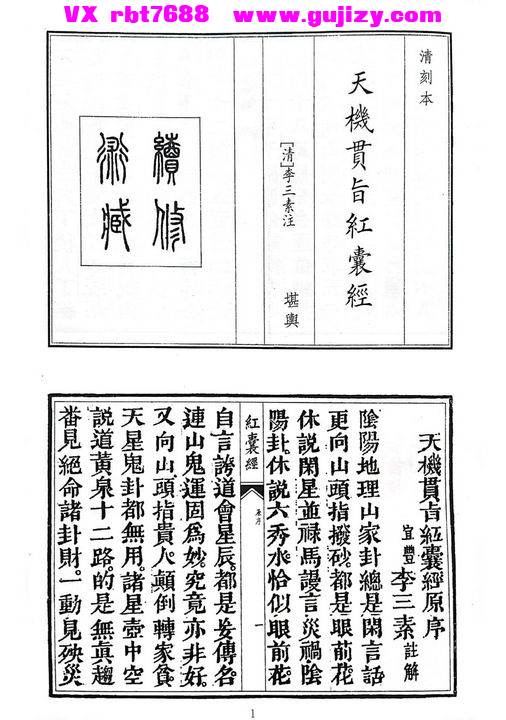 VX rbt7688 www.gujizy.com
清刻本
天機貫旨紅囊經
[清]李三素注
堪輿
續修
術藏
天機貫旨紅囊經原序
宜豐李三素註解
陰陽地理山家卦總是閑言話
更向山頭指撥砂都是眼前花
休說閑星並祿馬謾言災禍陰
陽卦休說六秀水恰似眼前花
紅囊經
原序
一
自言誇道會星辰都是妄傳名
連山鬼運固爲妙究竟亦非好
又向山頭指貴人顛倒轉家貧
天星鬼卦都無用諸星壺中空
說道黃泉十二路的是無真趨
番見絕命諸卦財一動見殃災
1